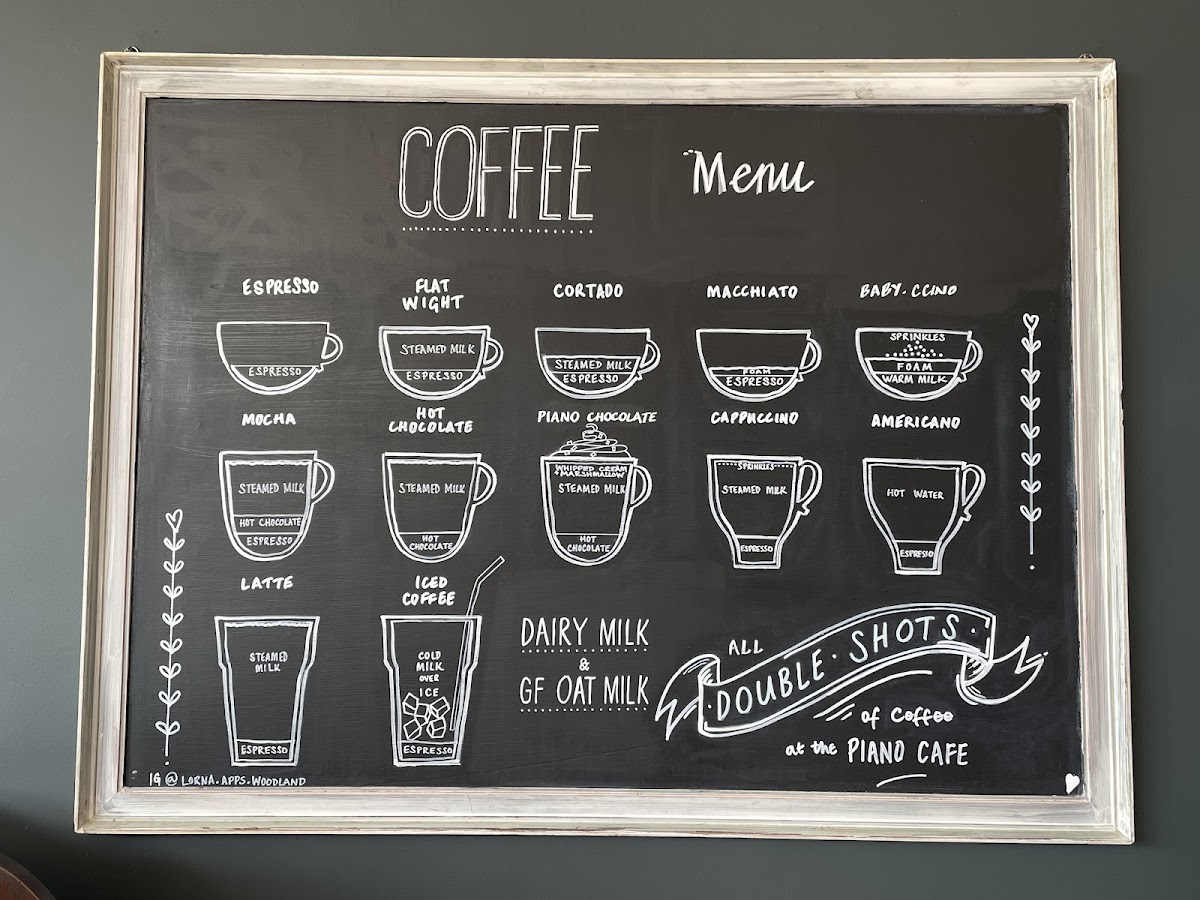 COFFEE Menu
ESPRESSO
ESPRESSO
FLAT
WIGHT
STEAMED MILK
ESPRESSO
CORTADO
STEAMED MILK
ESPRESSO
MACCHIATO
FOAM
ESPRESSO
BABY.CCINO
SPRINKLES
FOAM
WARM MILK
MOCHA
STEAMED MILK
HOT CHOCOLATE
ESPRESSO
HOT
CHOCOLATE
STEAMED MILK
HOT
CHOCOLATE
PIANO CHOCOLATE
WHIPPED CREAM
+ MARSHMALLOW
STEAMED MILK
HOT
CHOCOLATE
CAPPUCCINO
SPRINKLES
STEAMED MILK
ESPRESSO
AMERICANO
HOT WATER
ESPRESSO
LATTE
STEAMED
MILK
ESPRESSO
ICED
COFFEE
COLD
MILK
OVER
ICE
ESPRESSO
DAIRY MILK
&
GF OAT MILK
ALL
DOUBLE · SHOTS ·
of coffee
at the PIANO CAFE
IG @ LORNA.APPS.WOODLAND